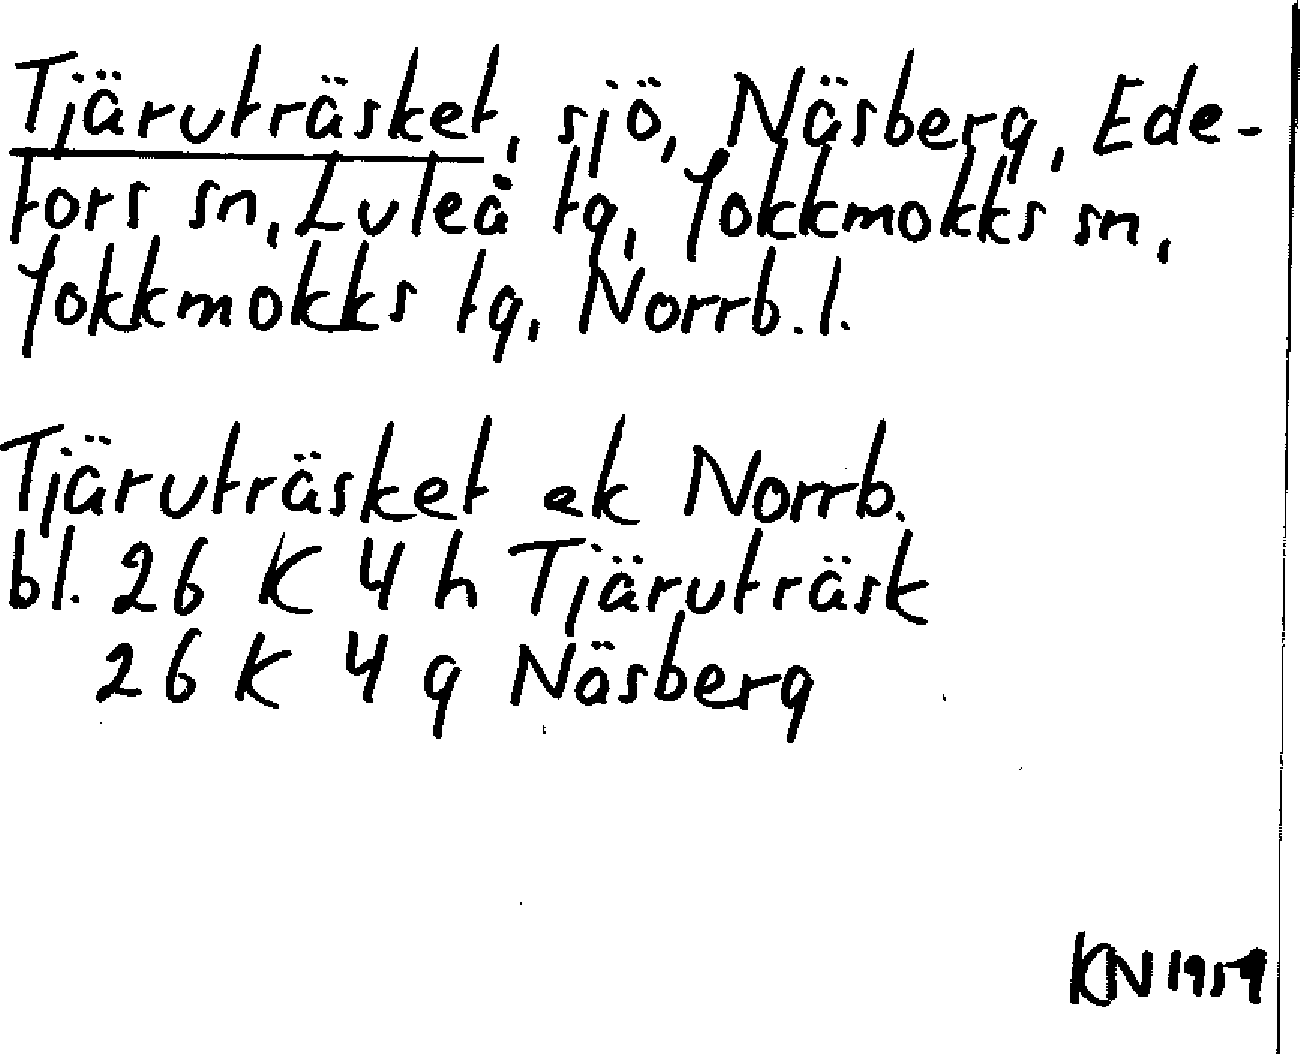 Tjäruträsket, sjö, Näsberg, Ede-
fors sn, Luleå tg, Jokkmokks sn,
Jokkmokks tg, Norrb. l.
Tjäruträsket ek Norrb.
bl. 26 K 4 h Tjäruträsk
26 K 4 g Näsberg
KN 1959